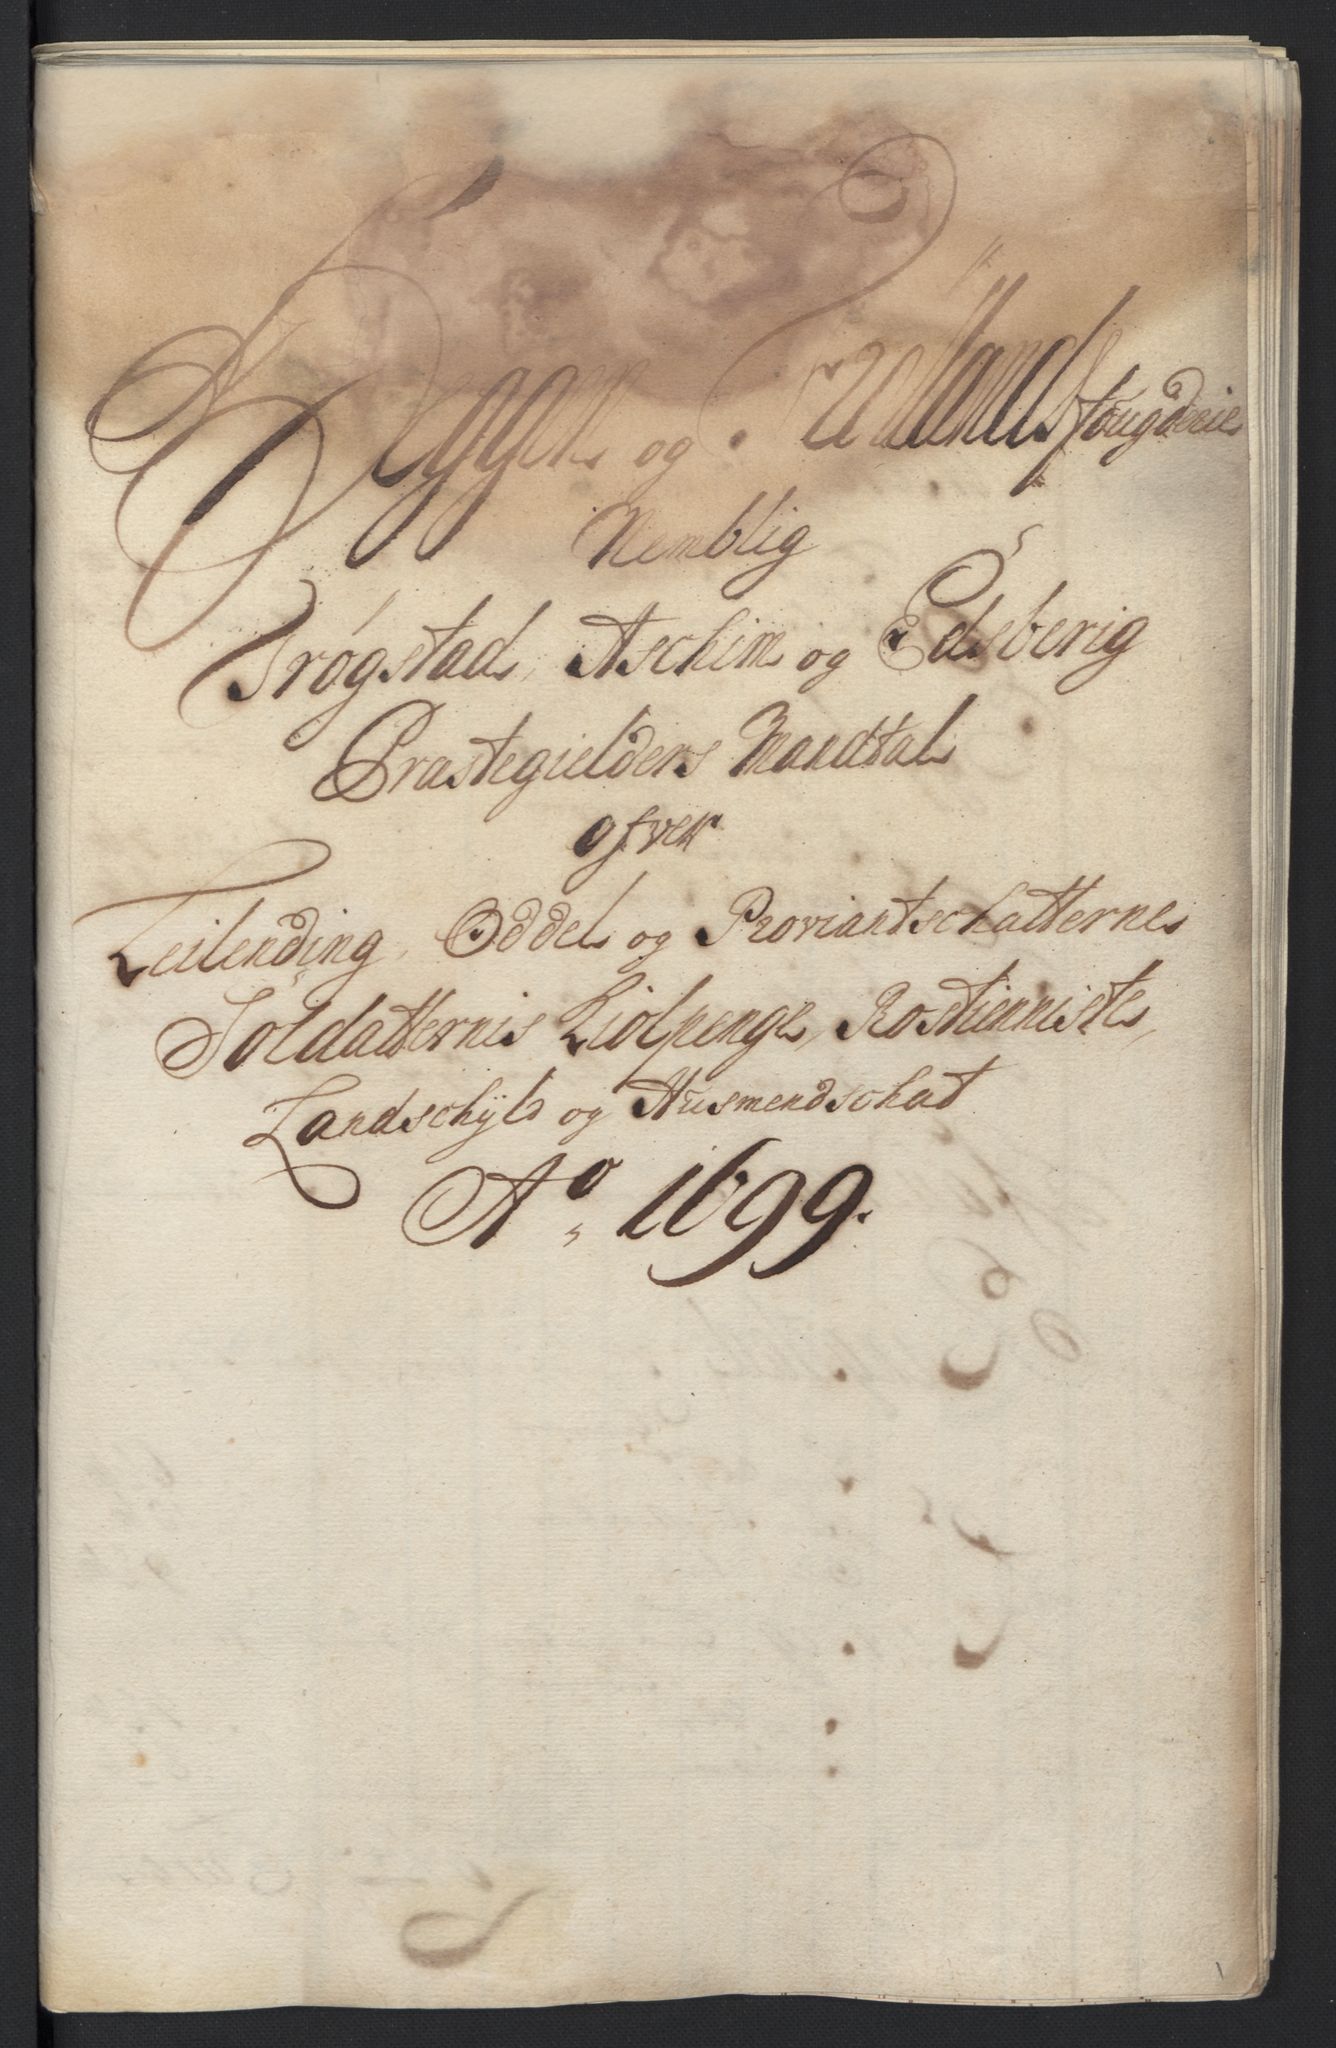 Heggen og Frølands fougderie
Nemblig
Trøgstad, Aschim og Edsberig
Præstegielders Mandtal
ofver
Leilending, Oddel og Proviantschatterne
Soldatternis Kiolpenge, Rostienniste,
Landschyld og Husmendschat
Aº 1699.
1